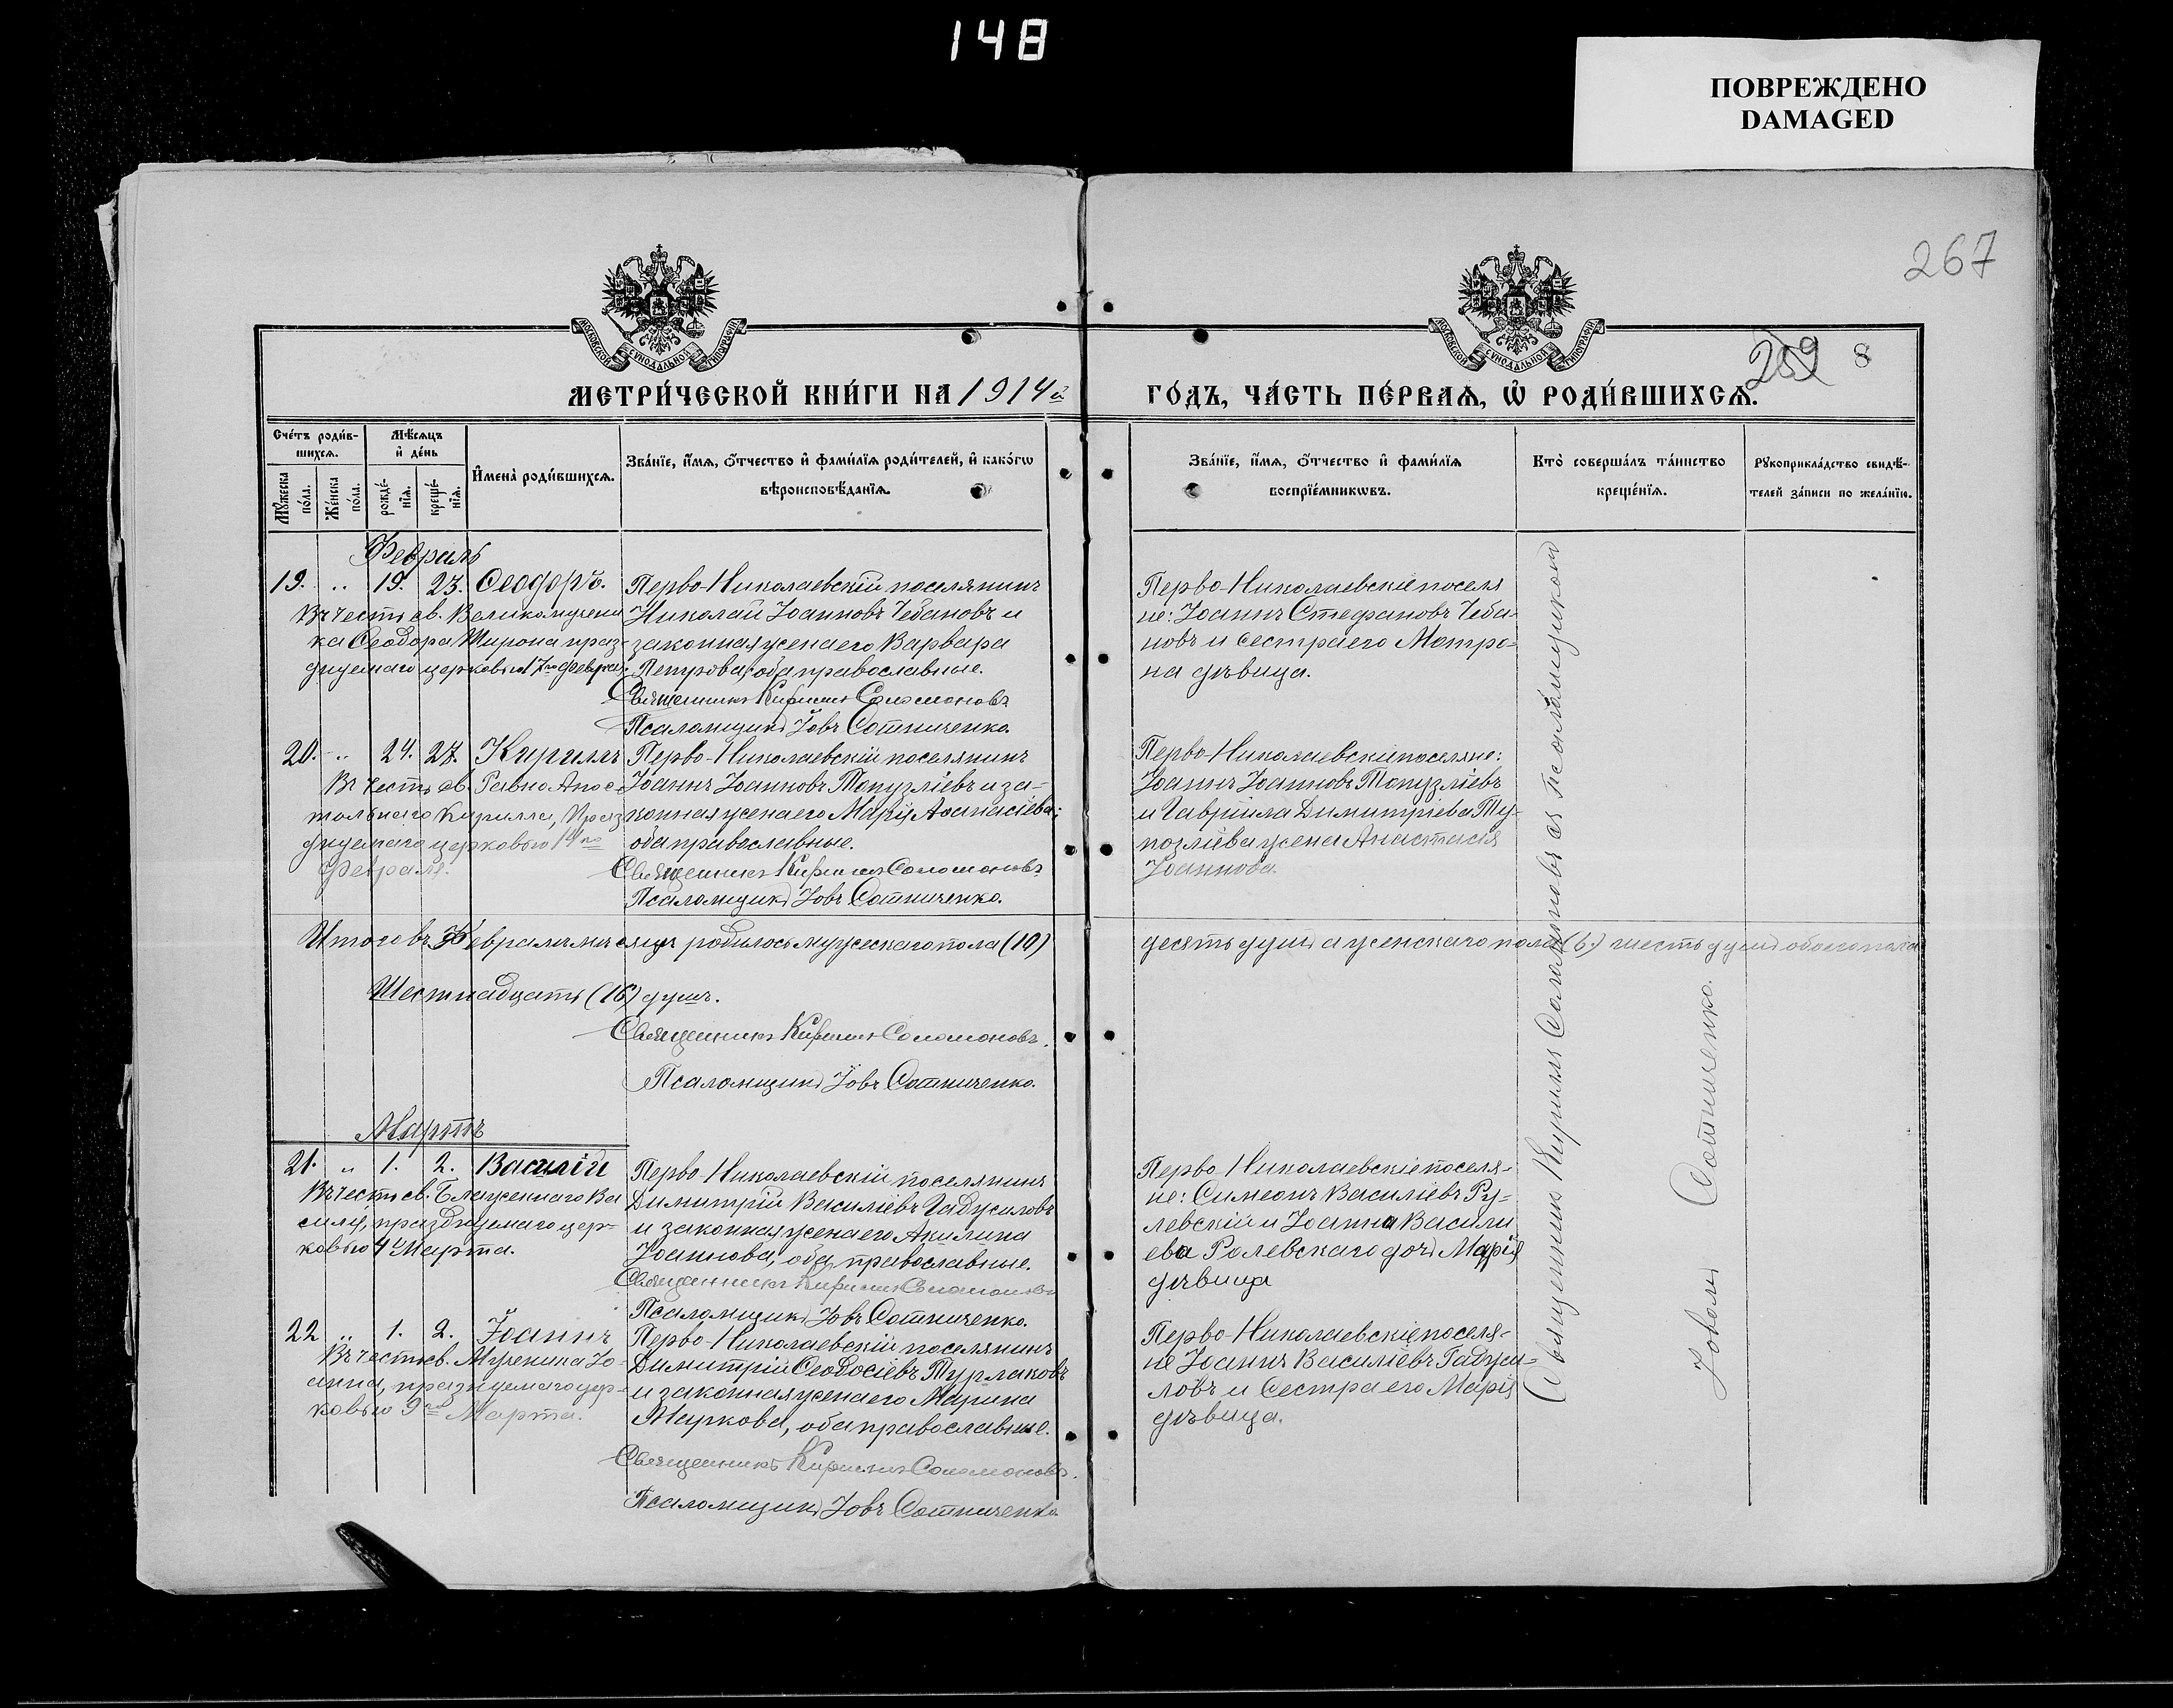 148
ПОВРЕЖДЕНО
DAMAGED
267
МОСКОВСКОЙ СѴНОДАЛЬНОЙ ТИПОГРАФІИ
МОСКОВСКОЙ СѴНОДАЛЬНОЙ ТИПОГРАФІИ
269 8
МЕТРИ́ЧЕСКОЙ КНИ́ГИ НА 1914й ГО́ДЪ, ЧА́СТЬ ПЕ́РВАѦ, Ѡ҆ РОДИ́ВШИХСѦ.
Сче́тъ роди́в-
шихсѧ.
Мѣ́сѧцъ
и҆ де́нь
Мꙋ́жеска
по́ла.
Же́нска
по́ла.
рожде́-
нїѧ.
креще́-
нїѧ.
И҆мена̀ роди́вшихсѧ.
Зва́нїе, и҆́мѧ, ѻ҆́тчество и҆ фами́лїѧ роди́телей, и҆ како́гѡ
вѣроисповѣ́данїѧ.
Зва́нїе, и҆́мѧ, ѻ҆́тчество и҆ фами́лїѧ
воспрїе́мникѡвъ.
Кто̀ соверша́лъ та́инство
креще́нїѧ.
Рꙋкоприкла́дство свидѣ́-
телей за́писи по жела́нїю.
Февраль
19. „ 19. 23. Ѳеодоръ.
Въ честь св. Великомучени
ка Ѳеодора Тирона праз-
днуемаго церковью 17го Февра.
Перво-Николаевскій поселянинъ
Николай Іоанновъ Чебановъ и
законная жена его Варвара
Петрова, оба православные.
Священникъ Кириллъ Соломоновъ
Псаломщикъ Іовъ Сотниченко.
Перво-Николаевскіе поселя
не: Іоаннъ Стефановъ Чеба-
новъ и сестра его Матро-
на дѣвица.
20. „ 24. 27. Кириллъ
Въ честь св. Равно Апос-
тольнаго Кирилла, праз
днуемаго церковью 14го
Февраля.
Перво-Николаевскій поселянинъ
Іоаннъ Іоанновъ Топузліевъ и за-
конная жена его Марія Аѳанасіева;
оба православные.
Священникъ Кириллъ Соломоновъ
Псаломщикъ Іовъ Сотниченко.
Перво-Николаевскіе поселяне:
Іоаннъ Іоанновъ Топузліевъ
и Гавріила Димитріева Ту-
позліева жена Анастасія
Іоаннова.
Итого въ Февралѣ мѣсяцѣ родилось мужескаго пола (10) десять душъ а женскаго пола (6.) шесть душъ обоего пола
Шестнадцать (16) душъ.
Священникъ Кириллъ Соломоновъ.
Псаломщикъ Іовъ Сотниченко.
Мартъ
21. „ 1. 2. Василій
Въ честь св. Блаженнаго Ва
силія, празднуемаго цер-
ковью 4 Марта.
Перво Николаевскій поселянинъ
Димитрій Василіевъ Гаджиловъ
и законная жена его Акилина
Іоаннова, оба православные.
Священникъ Кириллъ Соломоновъ
Псаломщикъ Іовъ Сотниченко.
Перво Николаевскіе поселя-
не: Симеонъ Василіевъ Ру-
левскій и Іоанна Васили
ева Ролевскаго дочь Марія
дѣвица
22 „ 1. 2. Іоаннъ
Въ честь св. Мученика Іо-
анна, празнуемаго цер-
ковью 9го Марта.
Перво-Николаевскій поселянинъ
Димитрій Ѳеодосіевъ Турлаковъ
и законная жена его Марина
Маркова, оба православные.
Священникъ Кириллъ Соломоновъ.
Псаломщикъ Іовъ Сотниченко
Перво-Николаевскіе поселя-
не Іоаннъ Василіевъ Гаджи-
ловъ и Сестра его Марія
дѣвица.
Священникъ Кириллъ Соломоновъ съ Псаломщикомъ
Іовомъ Сотниченко.